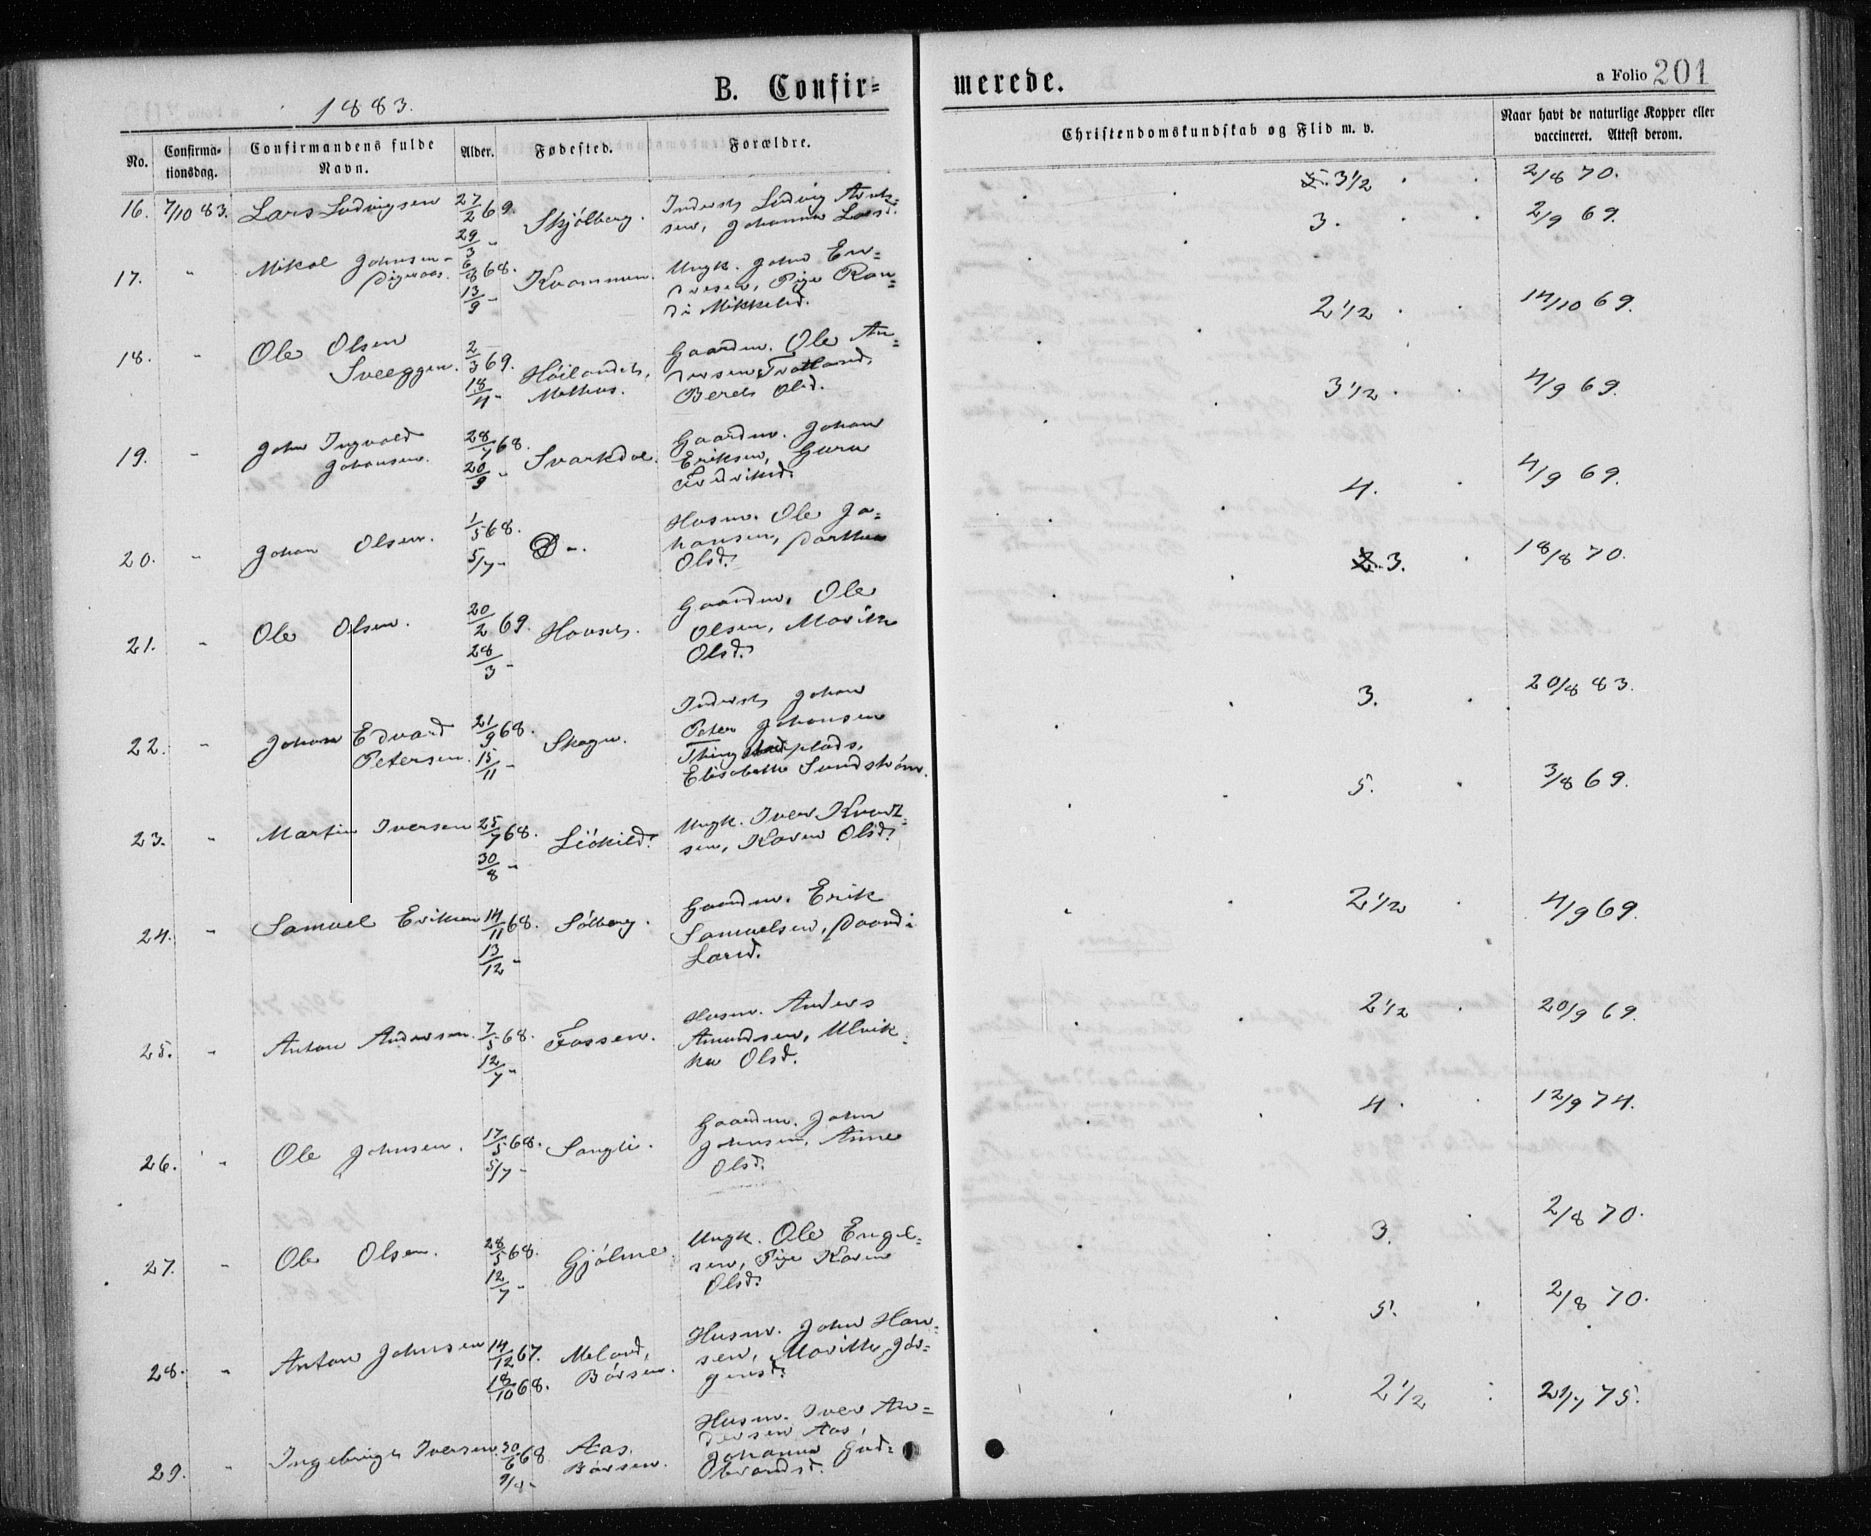 1883.
B. Confir=
merede.
a Folio 201
No.
Confirma-
tionsdag.
Confirmandens fulde
Navn.
Alder.
Fødested.
Forældre.
Christendomskundskab og Flid m. v.
Naar havt de naturlige Kopper eller
vaccineret. Attest derom.
16. 7/10 83. Lars Ludvigsen 27/2 69. 29/3 - Skjølberg. Inderst Ludvig Arnt=
sen, Johanna Larsd. 3 1/2 2/8 70.
17. " Mikal Johnsen 6/8 68. 13/9 - Kvammen. Ungk. John En=
sen, Pige Ran=
di Mikkelsd. 3. 2/9 69.
18. " Ole Olsen
Sveeggen. 2/3 69. 18/4 - Høilandet,
Melhus. Gaardm. Ole An=
dersen
Beret Olsd. 2 1/2 14/10 69.
19. " John Ingvald
Johansen. 28/7 68. 20/9 - Svarkdal. Gaardm. Johan
Eriksen, Guru
Fredriksd. 3 1/2 4/9 69.
20. " Johan Olsen. 1/5 68. 5/7 - -. Husm. Ole Jo=
hansen, Dorthea
Olsd. 4. 4/9 69.
21. " Ole Olsen. 20/2 69. 28/3 - Hovset. Gaardm. Ole
Olsen, Marith
Olsd. 3. 18/8 70.
22. " Johan Edvard
Petersen. 21/9 68. 15/11 - Skogn. Inderst Johan
Peter Johansen
Elisabeth Sundstrøm. 3. 20/8 83.
23. " Martin Iversen 25/7 68. 30/8 - Ungk. Iver
sen, Karen Olsd. 5. 3/8 69.
24. " Samuel Eriksen 14/11 68. 13/12 - Sølberg. Gaardm. Erik
Samuelsen,
Larsd. 2 1/2 4/9 69.
25. " Anton Andersen. 7/5 68. 12/7 - Fossen. Husm. Anders
Amundsen, Ulrik=
ka Olsd. 2 1/2 20/9 69.
26. " Ole Johnsen. 17/5 68. 5/7 - Songli. Gaardm. John
Johnsen, Anne
Olsd. 4. 12/9 74.
27. " Ole Olsen. 28/5 68. 12/7 - Gjølme. Ungk. Ole Engel=
sen, Pige Karen
Olsd. 3. 2/8 70.
28. " Anton Johnsen 14/12 67. 18/10 68. Meland,
Børsen. Husm. John Han=
sen, Marith Jør=
gensd. 5. 2/8 70.
29. " Ingebrigt Iversen 30/6 68 9/8 - Aas,
Børsen. Husm. Iver An=
dersen Aas,
Johanna Gud=
brandsd. 2 1/2 21/7 75.